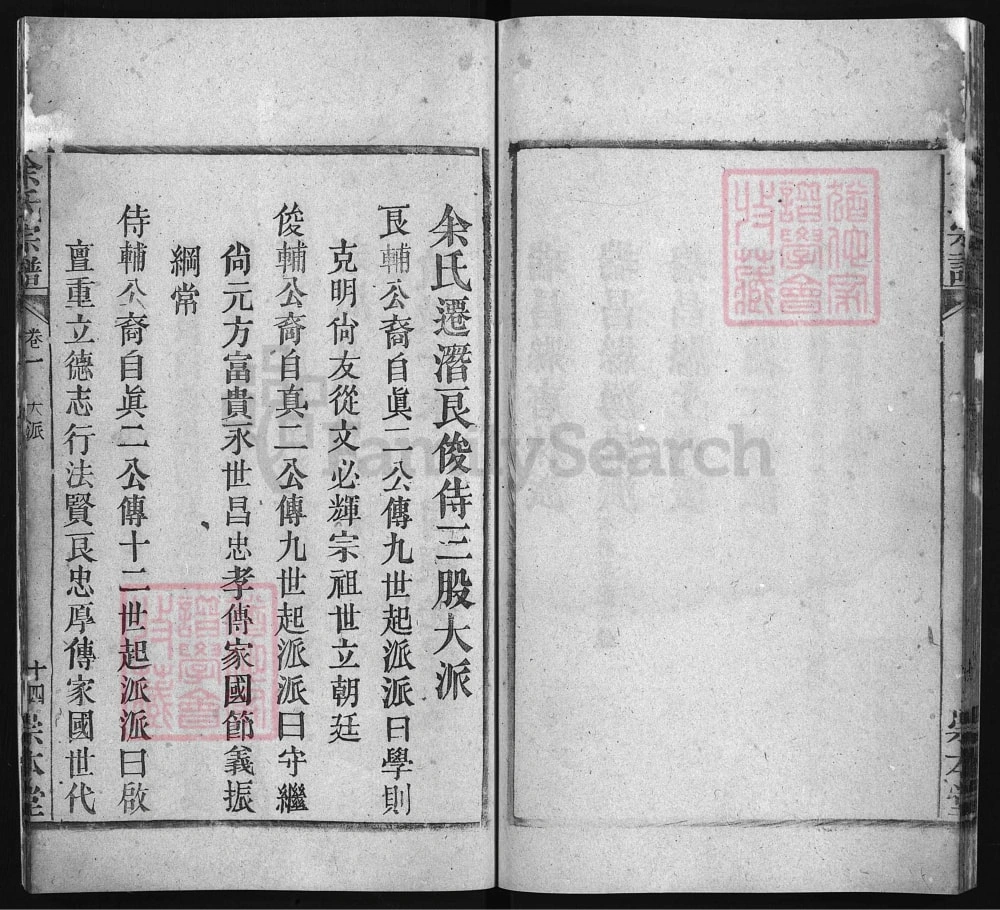 余氏遷潛良俊侍三股大派
良輔公裔自眞二公傳九世起派派曰學則
克明尙友從文必輝宗祖世立朝廷
俊輔公裔自真二公傳九世起派派曰守繼
尙元方富貴永世昌忠孝傳家國節義振
綱常
侍輔公裔自眞二公傳十二世起派派曰啟
亶重立德志行法賢良忠厚傳家國世代
余氏宗譜 卷一 大派 十四 崇本堂
譜學會
特藏
FamilySearch